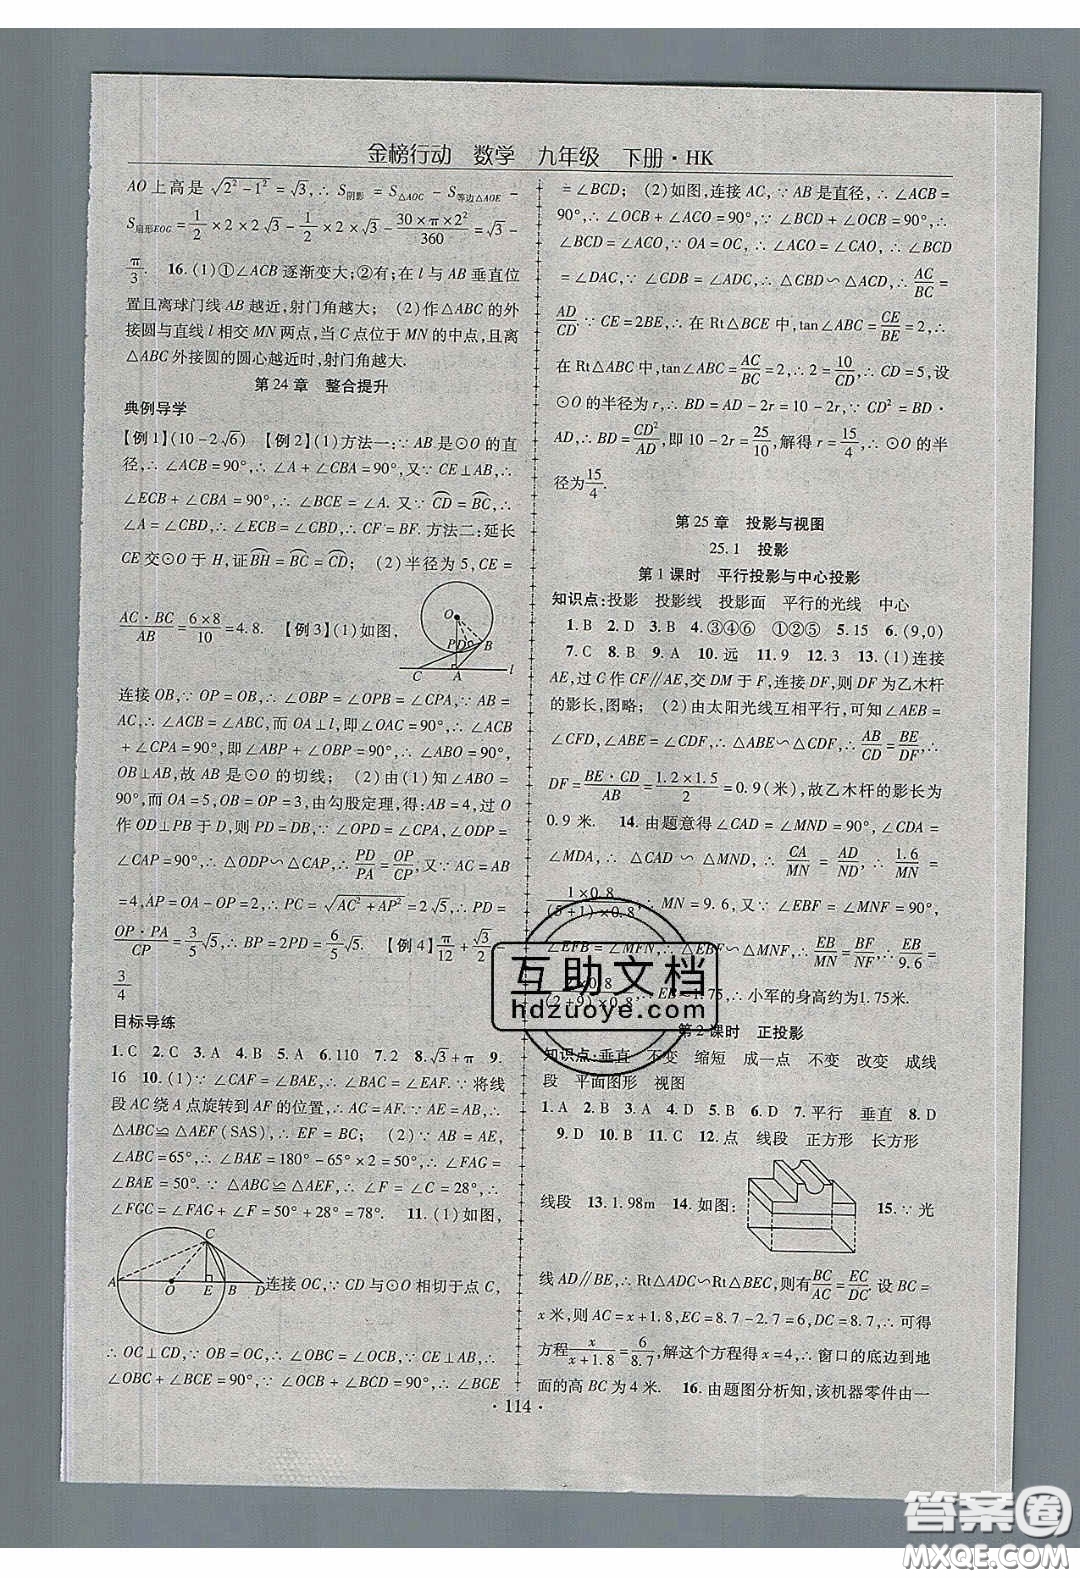 金榜行动　数学　九年级　下册·HK
AO上高是√(2²-1²)=√3,∴S阴影=S△AOC-S等边△AOE-
S扇形EOG=1/2×2×2√3-1/2×2×√3-(30×π×2²)/360=√3-
π/3.　16.(1)①∠ACB逐渐变大;②有;在l与AB垂直位
置且离球门线AB越近,射门角越大;　(2)作△ABC的外
接圆与直线l相交MN两点,当C点位于MN的中点,且离
△ABC外接圆的圆心越近时,射门角越大.
第24章　整合提升
典例导学
【例1】(10-2√6)　【例2】(1)方法一:∵AB是⊙O的直
径,∴∠ACB=90°,∴∠A+∠CBA=90°,又∵CE⊥AB,∴
∠ECB+∠CBA=90°,∴∠BCE=∠A.又∵CD=BC,∴
∠A=∠CBD,∴∠ECB=∠CBD,∴CF=BF.方法二:延长
CE交⊙O于H,证BH=BC=CD;　(2)半径为5,CE=
AC·BC/AB=6×8/10=4.8.　【例3】(1)如图,
O
PD
B
C
A
l
连接OB,∵OP=OB,∴∠OBP=∠OPB=∠CPA,∵AB=
AC,∴∠ACB=∠ABC,而OA⊥l,即∠OAC=90°,∴∠ACB
+∠CPA=90°,即∠ABP+∠OBP=90°,∴∠ABO=90°,
OB⊥AB,故AB是⊙O的切线;　(2)由(1)知∠ABO=
90°,而OA=5,OB=OP=3,由勾股定理,得:AB=4,过O
作OD⊥PB于D,则PD=DB,∵∠OPD=∠CPA,∠ODP=
∠CAP=90°,∴△ODP∽△CAP,∴PD/PA=OP/CP,又∵AC=AB
=4,AP=OA-OP=2,∴PC=√(AC²+AP²)=2√5,∴PD=
OP·PA/CP=3/5√5,∴BP=2PD=6/5√5.　【例4】π/12+√3/2-
3/4
目标导练
1.C　2.C　3.A　4.B　5.A　6.110　7.2　8.√3+π　9.
16　10.(1)∵∠CAF=∠BAE,∴∠BAC=∠EAF.∵将线
段AC绕A点旋转到AF的位置,∴AC=AF,∴
△ABC≌△AEF(SAS),∴EF=BC;　(2)∵AB=AE,
∠ABC=65°,∴∠BAE=180°-65°×2=50°,∴∠FAG=
∠BAE=50°.∵△ABC≌△AEF,∴∠F=∠C=28°,∴
∠FGC=∠FAG+∠F=50°+28°=78°.　11.(1)如图,
A
O
E
B
D
C
连接OC,∵CD与⊙O相切于点C,
∴OC⊥CD,∵OB=OC,∴∠OBC=∠OCB,∵CE⊥AB,∴
∠OBC+∠BCE=90°,∵∠OCB+∠BCD=90°,∴∠BCE
=∠BCD;　(2)如图,连接AC,∵AB是直径,∴∠ACB=
90°,∴∠OCB+∠ACO=90°,∵∠BCD+∠OCB=90°,∴
∠BCD=∠ACO,∵OA=OC,∴∠ACO=∠CAO,∴∠BCD
=∠DAC,∵∠CDB=∠ADC,∴△CBD∽△ACD,∴AC/BC=
AD/CD.∵CE=2BE,∴在Rt△BCE中,tan∠ABC=CE/BE=2,∴
在Rt△ABC中,tan∠ABC=AC/BC=2,∴2=10/CD,∴CD=5,设
⊙O的半径为r,∴BD=AD-2r=10-2r,∵CD²=BD·
AD,∴BD=CD²/AD,即10-2r=25/10,解得r=15/4,∴⊙O的半
径为15/4.
第25章　投影与视图
25.1　投影
第1课时　平行投影与中心投影
知识点:投影　投影线　投影面　平行的光线　中心
1.B　2.D　3.B　4.③④⑥　①②⑤　5.15　6.(9,0)
7.C　8.B　9.A　10.远　11.9　12.3　13.(1)连接
AE,过C作CF∥AE,交DM于F,连接DF,则DF为乙木杆
的影长,图略;　(2)由太阳光线互相平行,可知∠AEB=
∠CFD,∠ABE=∠CDF,∴△ABE∽△CDF,∴AB/CD=BE/DF,∴
DF=BE·CD/AB=1.2×1.5/2=0.9(米),故乙木杆的影长为
0.9米.　14.由题意得∠CAD=∠MND=90°,∠CDA=
∠MDA,∴△CAD∽△MND,∴CA/MN=AD/ND,∴1.6/MN=
1×0.8/(5+1)×0.8,∴MN=9.6,又∵∠EBF=∠MNF=90°,
∠EFB=∠MFN,∴△EBF∽△MNF,∴EB/MN=BF/NF,∴EB/9.6=
2×0.8/(2+9)×0.8,∴EB≈1.75,∴小军的身高约为1.75米.
第2课时　正投影
知识点:垂直　不变　缩短　成一点　不变　改变　成线
段　平面图形　视图
1.A　2.B　3.A　4.D　5.B　6.D　7.平行　垂直　8.D
9.D　10.B　11.C　12.点　线段　正方形　长方形
线段　13.1.98m　14.如图:　15.∵光
线AD∥BE,∴Rt△ADC∽Rt△BEC,则有BC/AC=EC/DC.设BC=
x米,则AC=x+1.8,EC=8.7-2.7=6,DC=8.7,∴可得
方程x/(x+1.8)=6/8.7,解这个方程得x=4,∴窗口的底边到地
面的高BC为4米.　16.由题图分析知,该机器零件由一
·114·
互助文档
hdzuoye.com
答案圈
MXQE.COM